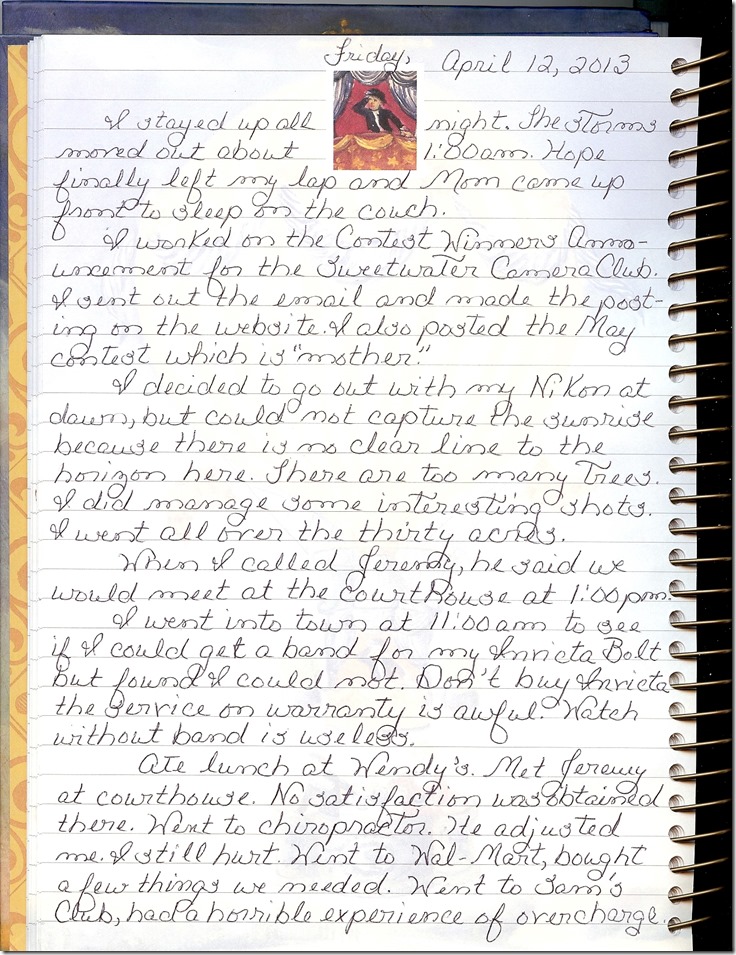 Friday, April 12, 2013
I stayed up all night. The storms
moved out about 1:00am. Hope
finally left my lap and Mom came up
front to sleep on the couch.
I worked on the Contest Winners Anno-
uncement for the Sweetwater Camera Club.
I sent out the email and made the post-
ing on the website. I also posted the May
contest which is "mother."
I decided to go out with my Nikon at
dawn, but could not capture the sunrise
because there is no clear line to the
horizon here. There are too many trees.
I did manage some interesting shots.
I went all over the thirty acres.
When I called Jeremy, he said we
would meet at the courthouse at 1:00pm.
I went into town at 11:00am to see
if I could get a band for my Invicta Bolt
but found I could not. Don't buy Invicta
the service on warranty is awful. Watch
without band is useless.
Ate lunch at Wendy's. Met Jeremy
at courthouse. No satisfaction was obtained
there. Went to chiropractor. He adjusted
me. I still hurt. Went to Wal-Mart, bought
a few things we needed. Went to Sam's
Club, had a horrible experience of overcharge.